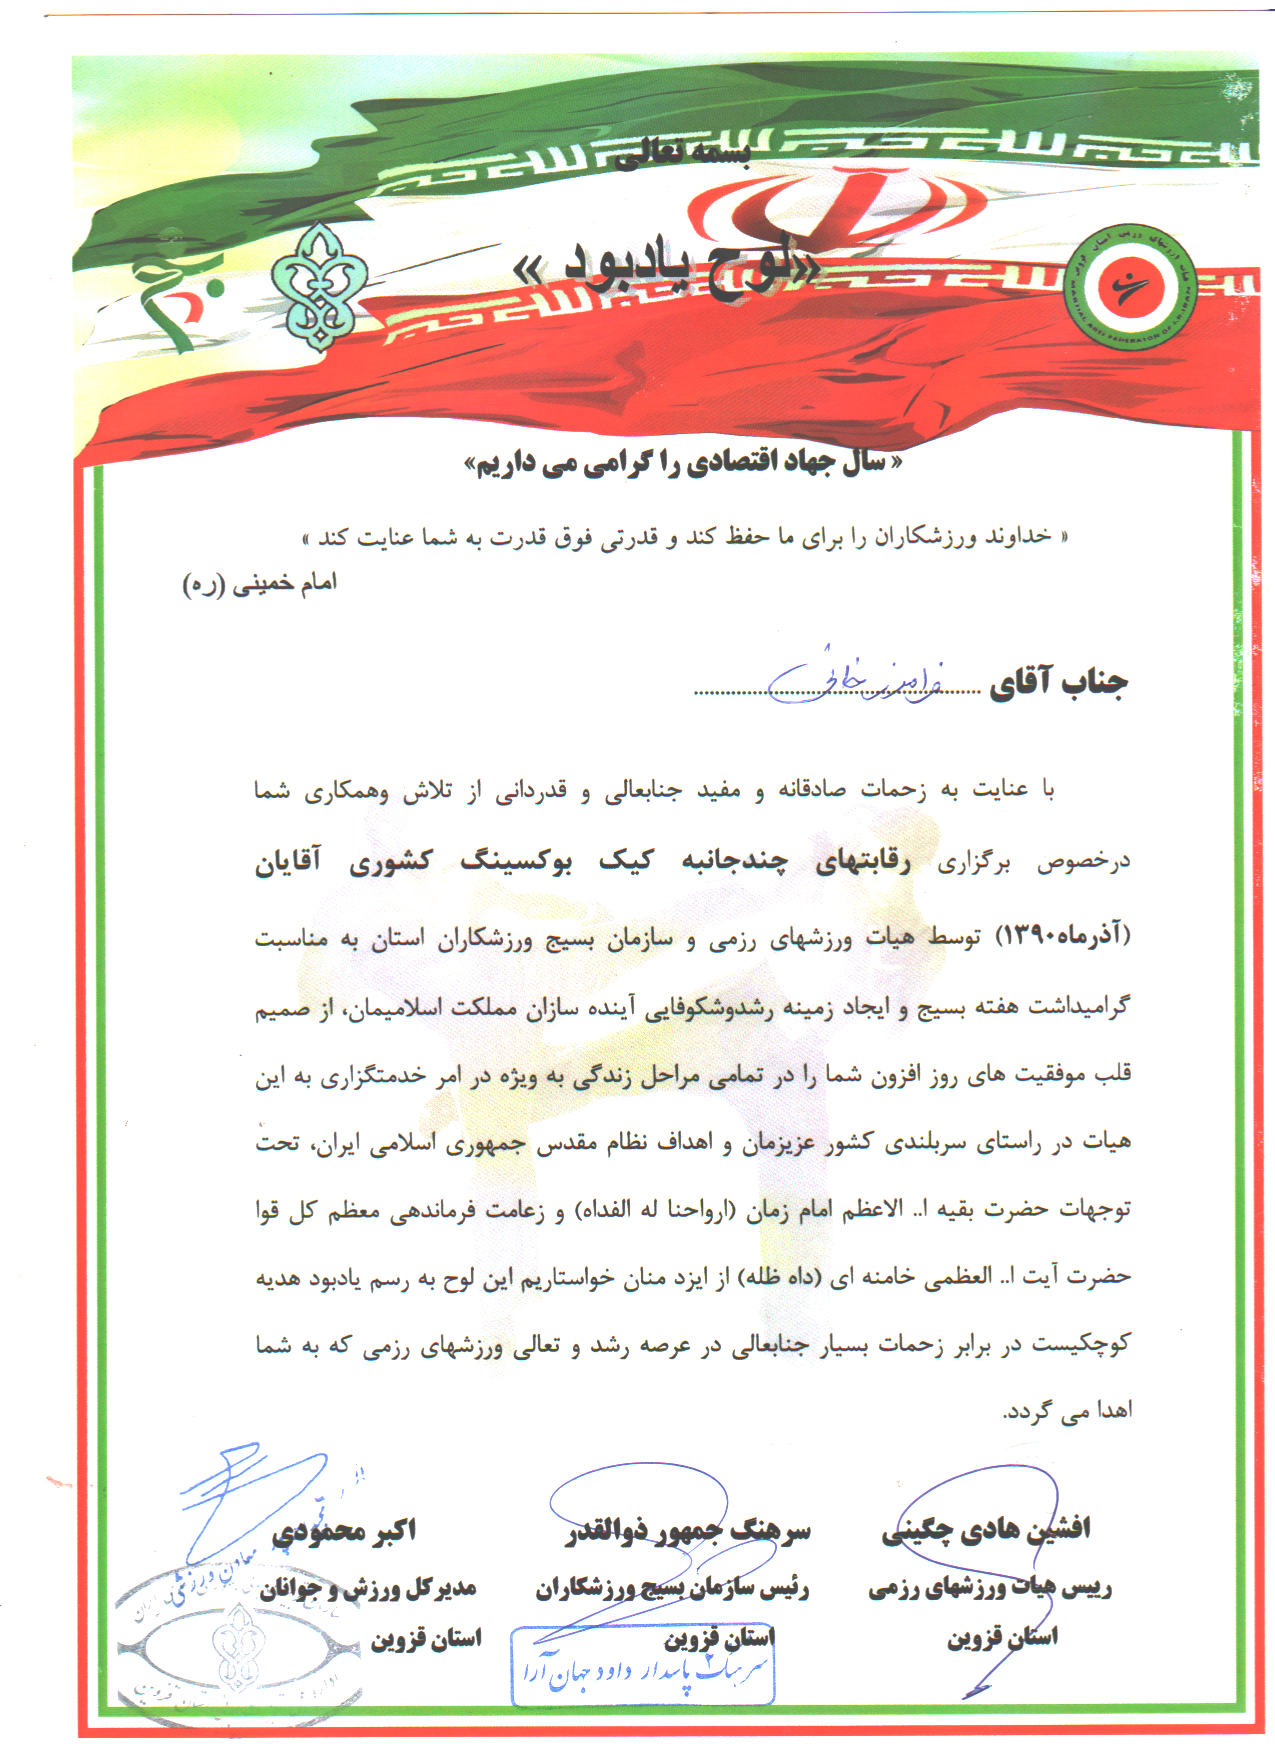 بسمه تعالی
«لوح یادبود »
MARTIAL ARTS FEDERATION OF I.R.IRAN
« سال جهاد اقتصادی را گرامی می داریم»
« خداوند ورزشکاران را برای ما حفظ کند و قدرتی فوق قدرت به شما عنایت کند »
امام خمینی (ره)
جناب آقای ........ فرامرز خانی ........
با عنایت به زحمات صادقانه و مفید جنابعالی و قدردانی از تلاش وهمکاری شما
درخصوص برگزاری رقابتهای چندجانبه کیک بوکسینگ کشوری آقایان
(آذرماه۱۳۹۰) توسط هیات ورزشهای رزمی و سازمان بسیج ورزشکاران استان به مناسبت
گرامیداشت هفته بسیج و ایجاد زمینه رشدوشکوفایی آینده سازان مملکت اسلامیمان، از صمیم
قلب موفقیت های روز افزون شما را در تمامی مراحل زندگی به ویژه در امر خدمتگزاری به این
هیات در راستای سربلندی کشور عزیزمان و اهداف نظام مقدس جمهوری اسلامی ایران، تحت
توجهات حضرت بقیه ا.. الاعظم امام زمان (ارواحنا له الفداه) و زعامت فرماندهی معظم کل قوا
حضرت آیت ا.. العظمی خامنه ای (داه ظله) از ایزد منان خواستاریم این لوح به رسم یادبود هدیه
کوچکیست در برابر زحمات بسیار جنابعالی در عرصه رشد و تعالی ورزشهای رزمی که به شما
اهدا می گردد.
افشین هادی چگینی
رییس هیات ورزشهای رزمی
استان قزوین
سرهنگ جمهور ذوالقدر
رئیس سازمان بسیج ورزشکاران
استان قزوین
سرهنگ ۲ پاسدار داود جهان آرا
اکبر محمودی
مدیرکل ورزش و جوانان
استان قزوین
معاون ورزشی